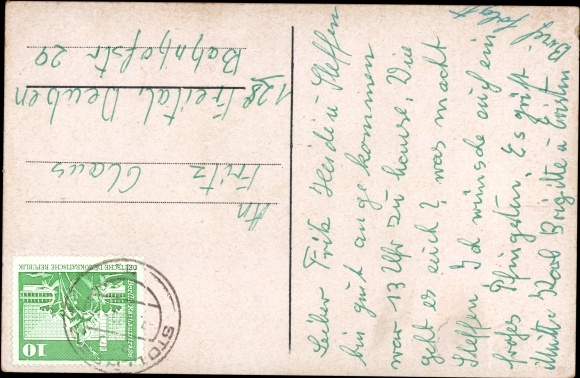 Lieber Fritz Heidi u Steffen
bin gut angekommen
war 13 Uhr zu hause. Wie
geht es euch? was macht
Steffen Ich wünsche auch ein
frohes Pfingsten. Es grüst
Mutti Karl Brigitte u Kristin
Brief folgt
An
Fritz Claus
128 Freital, Deuben
Bahnhofstr 29
DEUTSCHE DEMOKRATISCHE REPUBLIK
Berlin, Rathausstrasse
10
STOL